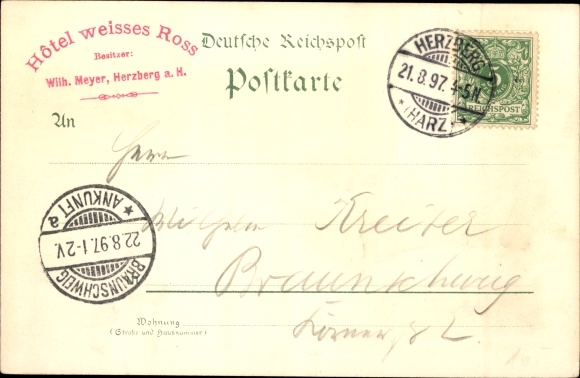 Hôtel weisses Ross
Besitzer:
Wilh. Meyer, Herzberg a. H.
Deutsche Reichspost
Postkarte
HERZBERG
21.8.97. 4-5N.
* (HARZ) *
REICHSPOST
An
Herrn
Wilhelm Kreiter
Braunschweig
* ANKUNFT a
22.8.97. 1-2V.
BRAUNSCHWEIG
Wohnung
(Straße und Hausnummer)